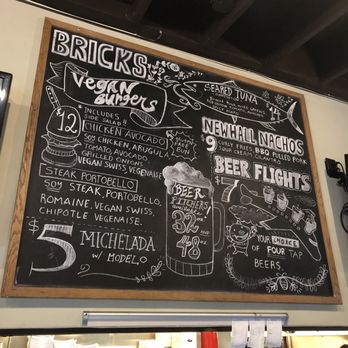 BRICKS
VEGAN
BURGERS
$12
*INCLUDES
SIDE SALAD
CHICKEN AVOCADO
SOY CHICKEN, ARUGULA,
TOMATO, AVOCADO,
GRILLED ONIONS,
VEGAN SWISS, VEGENAISE
STEAK PORTOBELLO
SOY STEAK, PORTOBELLO,
ROMAINE, VEGAN SWISS,
CHIPOTLE VEGENAISE.
$5 MICHELADA
W/ MODELO
BEER
PITCHERS
32 oz
$18
48 oz
SEARED TUNA
14
NEWHALL NACHOS
9 CURLY FRIES, BBQ PULLED PORK,
SOUR CREAM, CILANTRO
BEER FLIGHTS
YOUR CHOICE
OF FOUR TAP
BEERS.